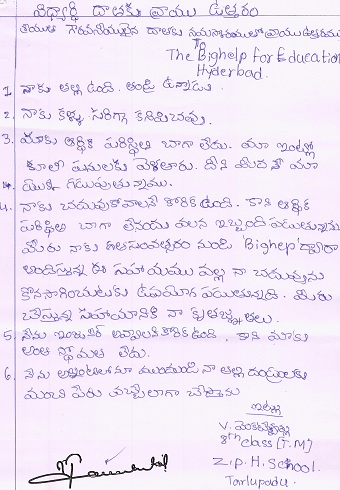 విద్యార్థి దాతకు వ్రాయు ఉత్తరం
గౌరవనీయులైన దాతలకు వ్రాయు ఉత్తరము
To
The Bighelp for Education
Hyderbad.
1. నాకు తల్లి ఉంది. తండ్రి ఉన్నాడు.
2. నాకు కళ్ళు సరిగ్గా కనిపించవు.
3. మాకు ఆర్థిక పరిస్థితి బాగా లేదు. మా ఇంట్లో
కూలి పనులకు వెళతారు. దీని మీదనే మా
గడుపుతున్నాము.
4. నాకు చదువుకోవాలనే కోరిక ఉంది. కాని ఆర్థిక
పరిస్థితి బాగా లేనందు వలన ఇబ్బంది పడుతున్నాము
మీరు నాకు గత సంవత్సరం నుండి 'Bighep' ద్వారా
అందిస్తున్న ఈ సహాయము వల్ల నా చదువును
కొనసాగించుటకు ఉపయోగ పడుతున్నది. మీరు
చేస్తున్న సహాయానికి నా కృతజ్ఞతలు.
5. నేను ఇంజనీర్ అవ్వాలని కోరిక ఉంది. కాని మాకు
అంత స్తోమత లేదు.
6. నేను నా తల్లి దండ్రులకు
మంచి పేరు వచ్చేలాగా చేస్తాను
ఇట్లు
V.
8th class (T.M)
Z.P.H. School.
Tarlupadu.